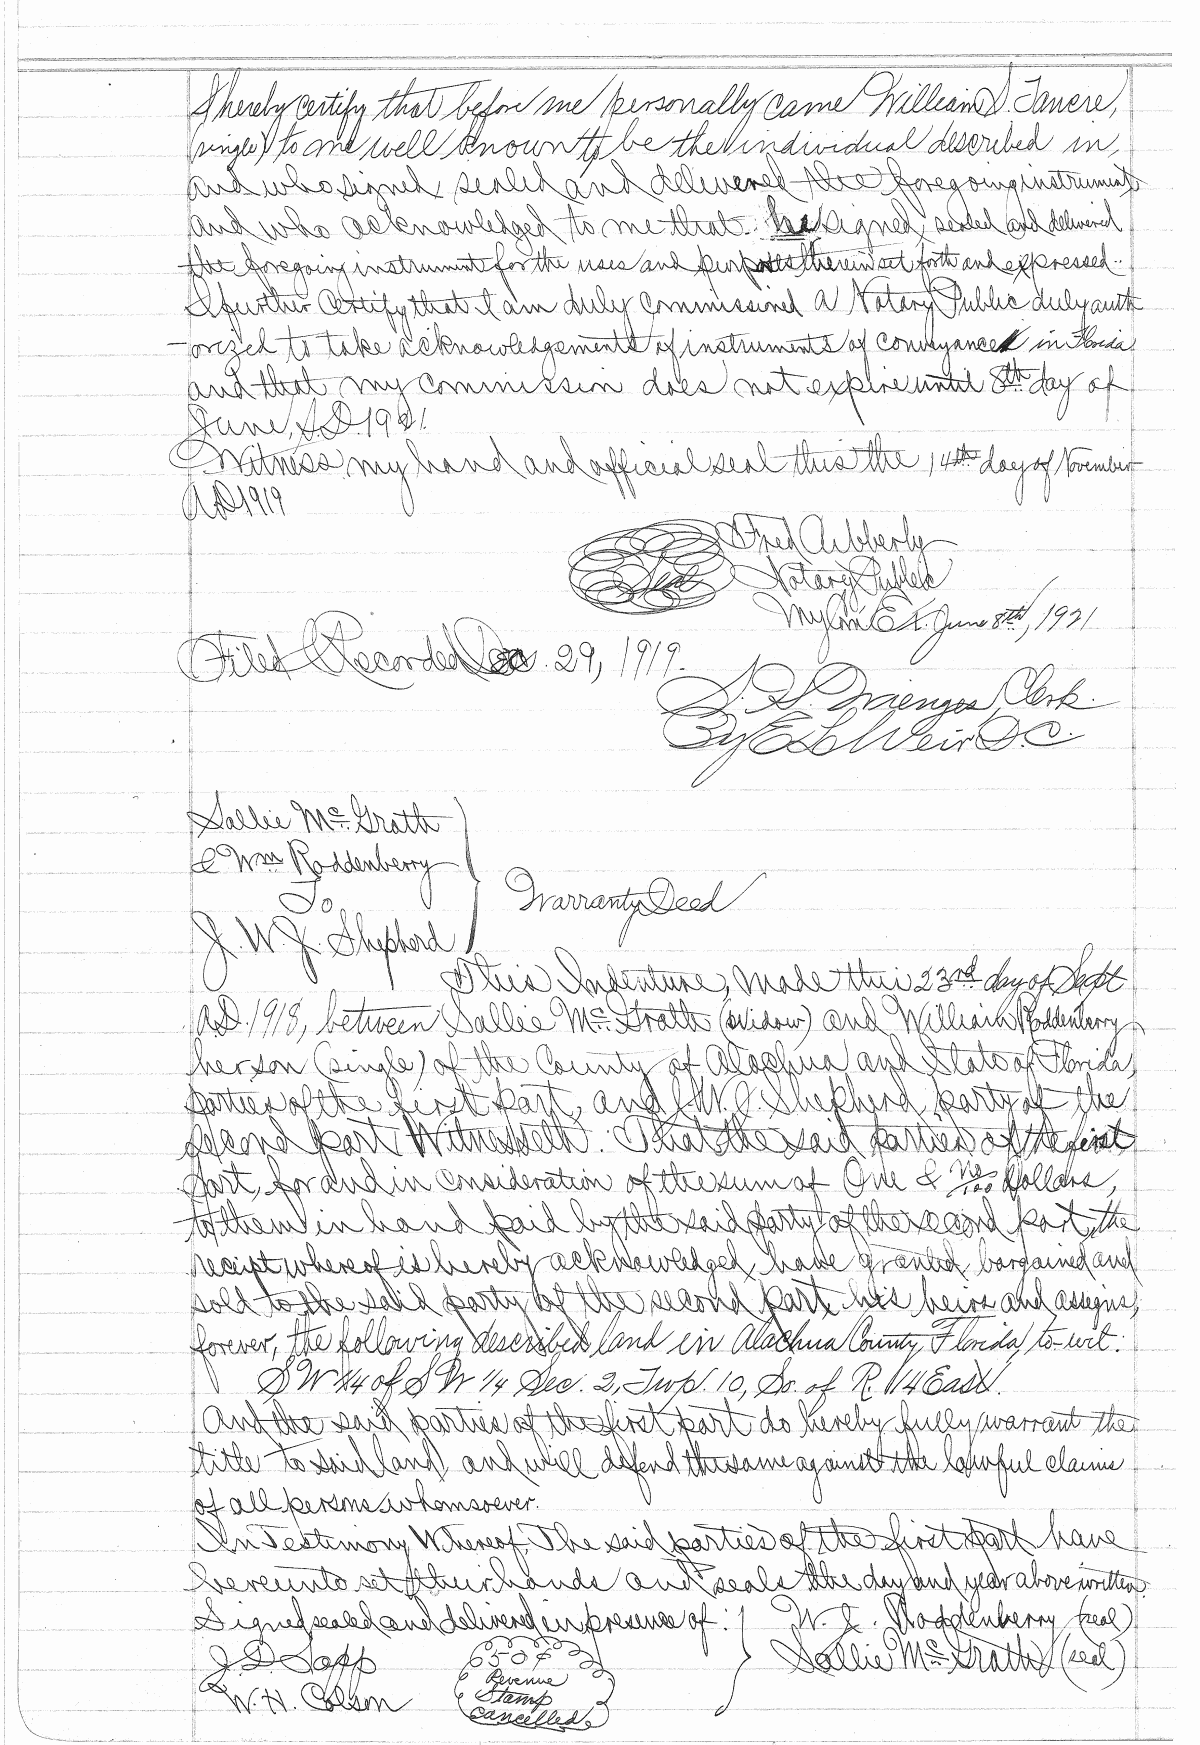 I hereby certify that before me personally came William S. Tancre,
(single) to me well known to be the individual described in,
and who signed, sealed and delivered the foregoing instrument
and who acknowledged to me that he signed, sealed and delivered
the foregoing instrument for the uses and purposes therein set forth and expressed.
I further certify that I am duly commissioned a Notary Public duly auth
-orized to take acknowledgements of instruments of conveyance in Florida
and that my commission does not expire until 8th day of
June, A.D. 1921.
Witness my hand and official seal this the 14th day of November
A.D. 1919
Fred
Seal Notary Public
My Com Ex. June 8th, 1921
Filed & Recorded Dec. 29, 1919.
S. H. Wienges, Clerk.
By E L Weir D.C.
Sallie Mc Grath
& Wm Roddenberry
To
Warranty Deed
J. W. J. Shepherd
This Indenture, Made this 23rd day of Sept
A.D. 1918, between Sallie Mc Grath (Widow) and William Roddenberry
her son (single) of the County of Alachua and State of Florida,
parties of the first part, and J. W. J. Shepherd, party of the
second part Witnesseth: That the said parties of the first
part, for and in consideration of the sum of One & no/100 Dollars,
to them in hand paid by the said party of the second part, the
receipt whereof is hereby acknowledged, have granted, bargained and
sold to the said party of the second part, his heirs and assigns,
forever, the following described land in Alachua County, Florida, to-wit:
SW 1/4 of SW 1/4 Sec. 2, Twp. 10, So. of R. 14 East.
And the said parties of the first part do hereby fully warrant the
title to said land, and will defend the same against the lawful claims
of all persons whomsoever.
In Testimony Whereof, The said parties of the first part have
hereunto set their hands and seals the day and year above written.
Signed, sealed and delivered in presence of: W. J. Roddenberry (seal)
J. D. Sapp Sallie Mc Grath (seal)
W. H. Colson
50¢
Revenue
Stamp
cancelled.